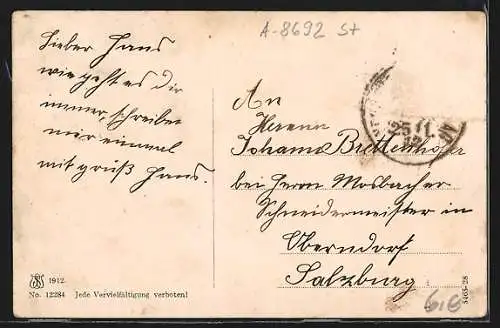 A-8692 St
Lieber Hans
wie geht es Dir
immer, schreibe
mir einmal
mit gruß Hans.
An
Herrn
Johann Brettenhofer
bei Herrn Mosbacher
Schneidermeister in
Oberndorf
Salzburg
25 11
12
1912.
No. 12284 Jede Vervielfältigung verboten!
5465-28